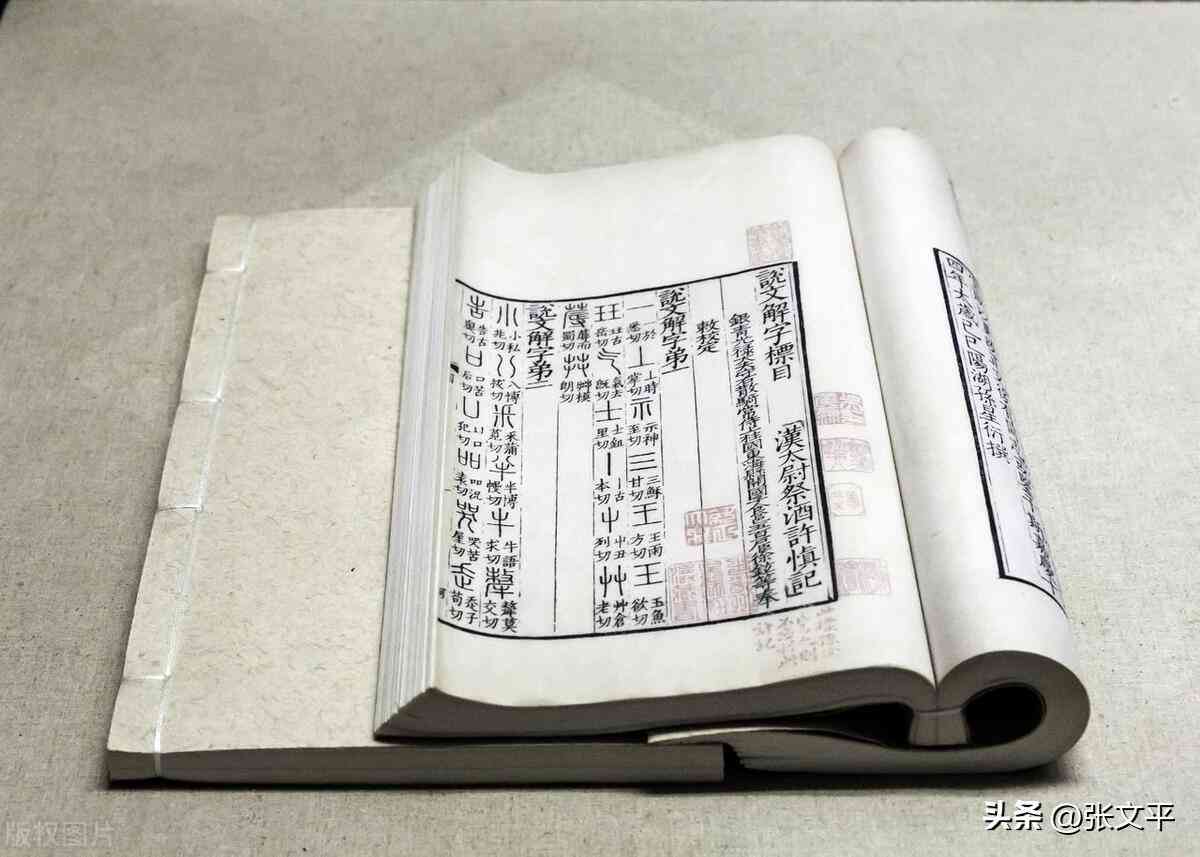 陽湖孫星衍撰
說文解字標目
漢太尉祭酒許愼記
銀青光祿大夫守右散騎常侍上柱國東海縣開國子食邑五百戶臣徐鉉等奉
敕校定
說文解字弟一
一 一於悉切 丄 丄時掌切 示 示神至切 三 三穌甘切 王 王雨方切 玉 玉魚欲切
玨 玨古岳切 气 气去旣切 士 士鉏里切 丨 丨古本切 屮 屮丑列切 艸 艸倉老切
蓐 蓐而蜀切 茻 茻模朗切
說文解字弟二
小 小私兆切 八 八博拔切 釆 釆蒲莧切 半 半博幔切 牛 牛語求切 犛 犛莫交切
告 告古奧切 口 口苦后切 凵 凵口犯切 吅 吅況袁切 哭 哭苦屋切 走 走子苟切
版权图片
头条 @张文平